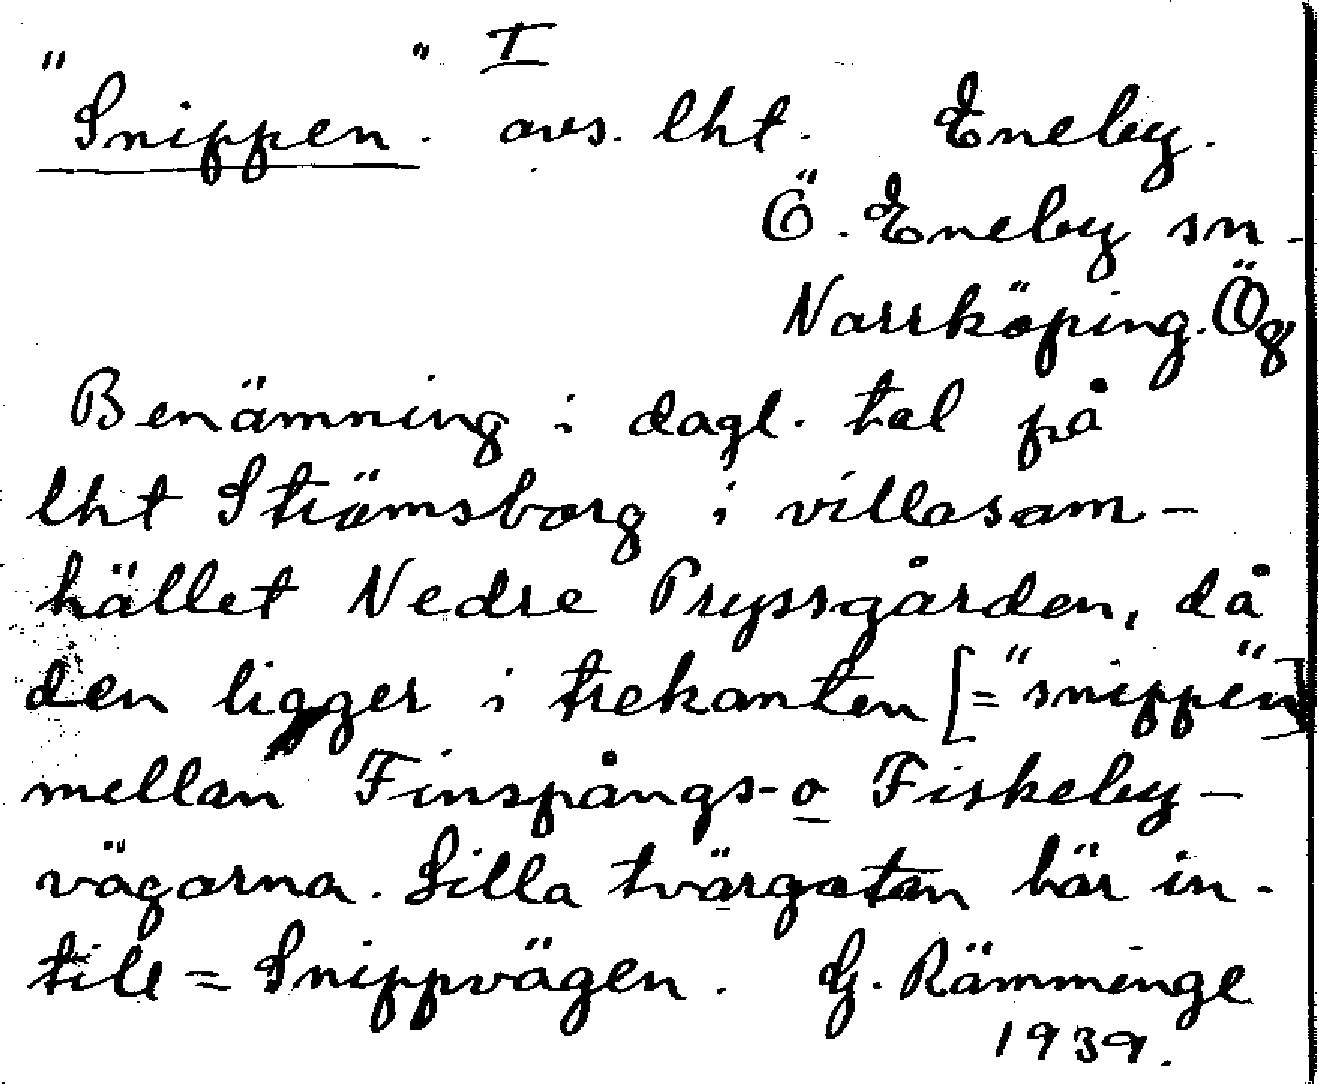 "Snippen". I avs. lht. Eneby.
Ö. Eneby sn.
Norrköping. Ög
Benämning i dagl. tal på
lht Strömsborg i villasam-
hället Nedre Pryssgården, då
den ligger i trekanten [="snippen"]
mellan Finspångs- o Fiskeby-
vägarna. Lilla tvärgatan här in-
till = Snippvägen. G. Rämminge
1939.